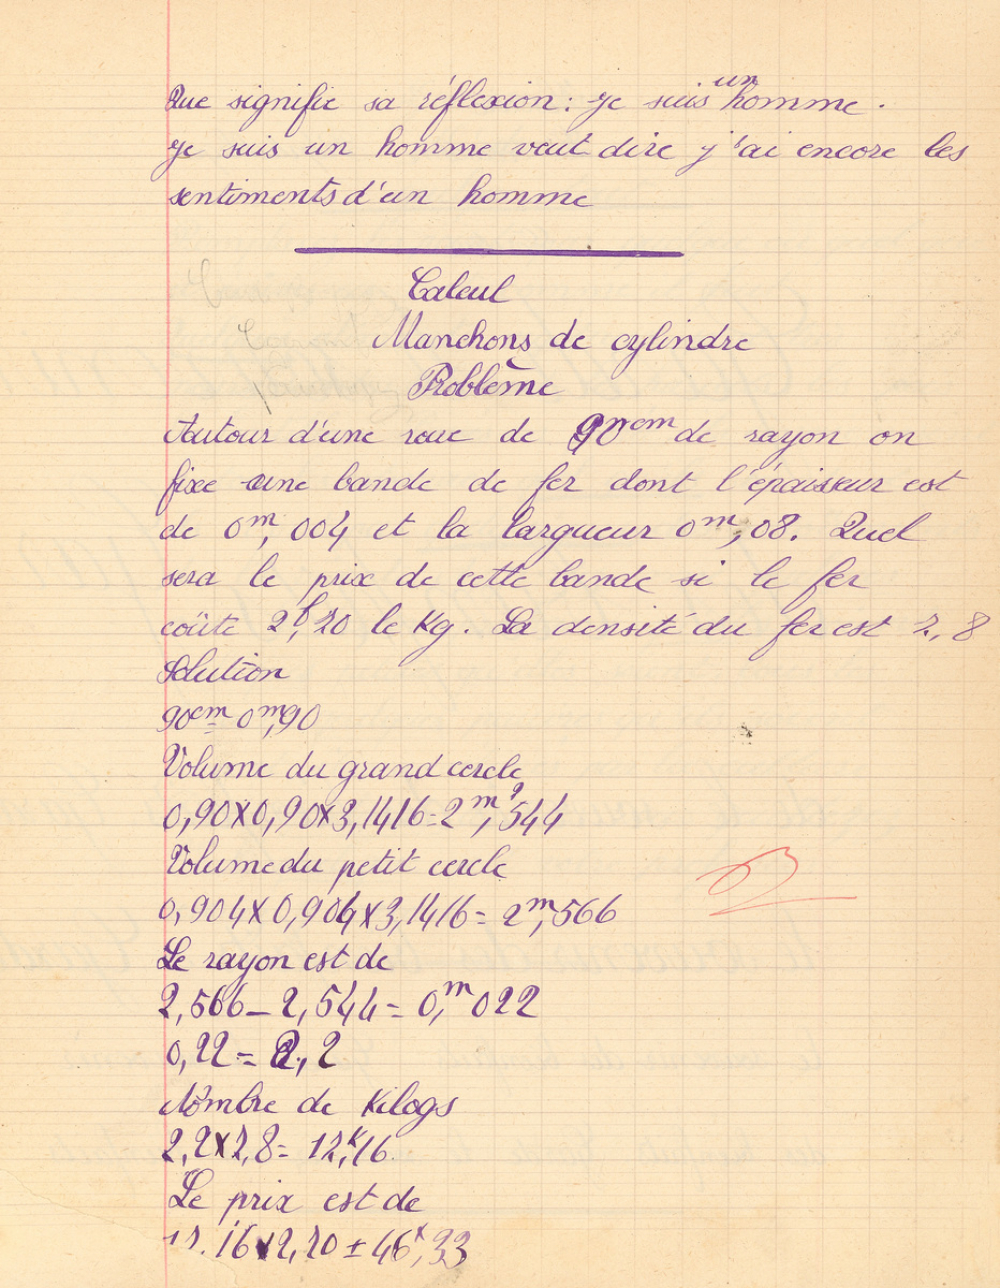 Que signifie sa réflexion : je suis un homme.
Je suis un homme veut dire j'ai encore les
sentiments d'un homme
Calcul
Manchons de cylindre
Problème
Autour d'une roue de 90cm de rayon on
fixe une bande de fer dont l'épaisseur est
de 0m,004 et la largueur 0m,08. Quel
sera le prix de cette bande si le fer
coûte 2f,70 le Kg. La densité du fer est 7,8
Solution
90cm = 0m,90
Volume du grand cercle
0,90x0,90x3,1416=2m²,544
Volume du petit cercle
0,904x0,904x3,1416= 2m,566
Le rayon est de
2,566-2,544= 0,m022
0,22= 2,2
Nombre de Kilogs
2,2x7,8= 17K,16
Le prix est de
17.16x2,70 = 46,33